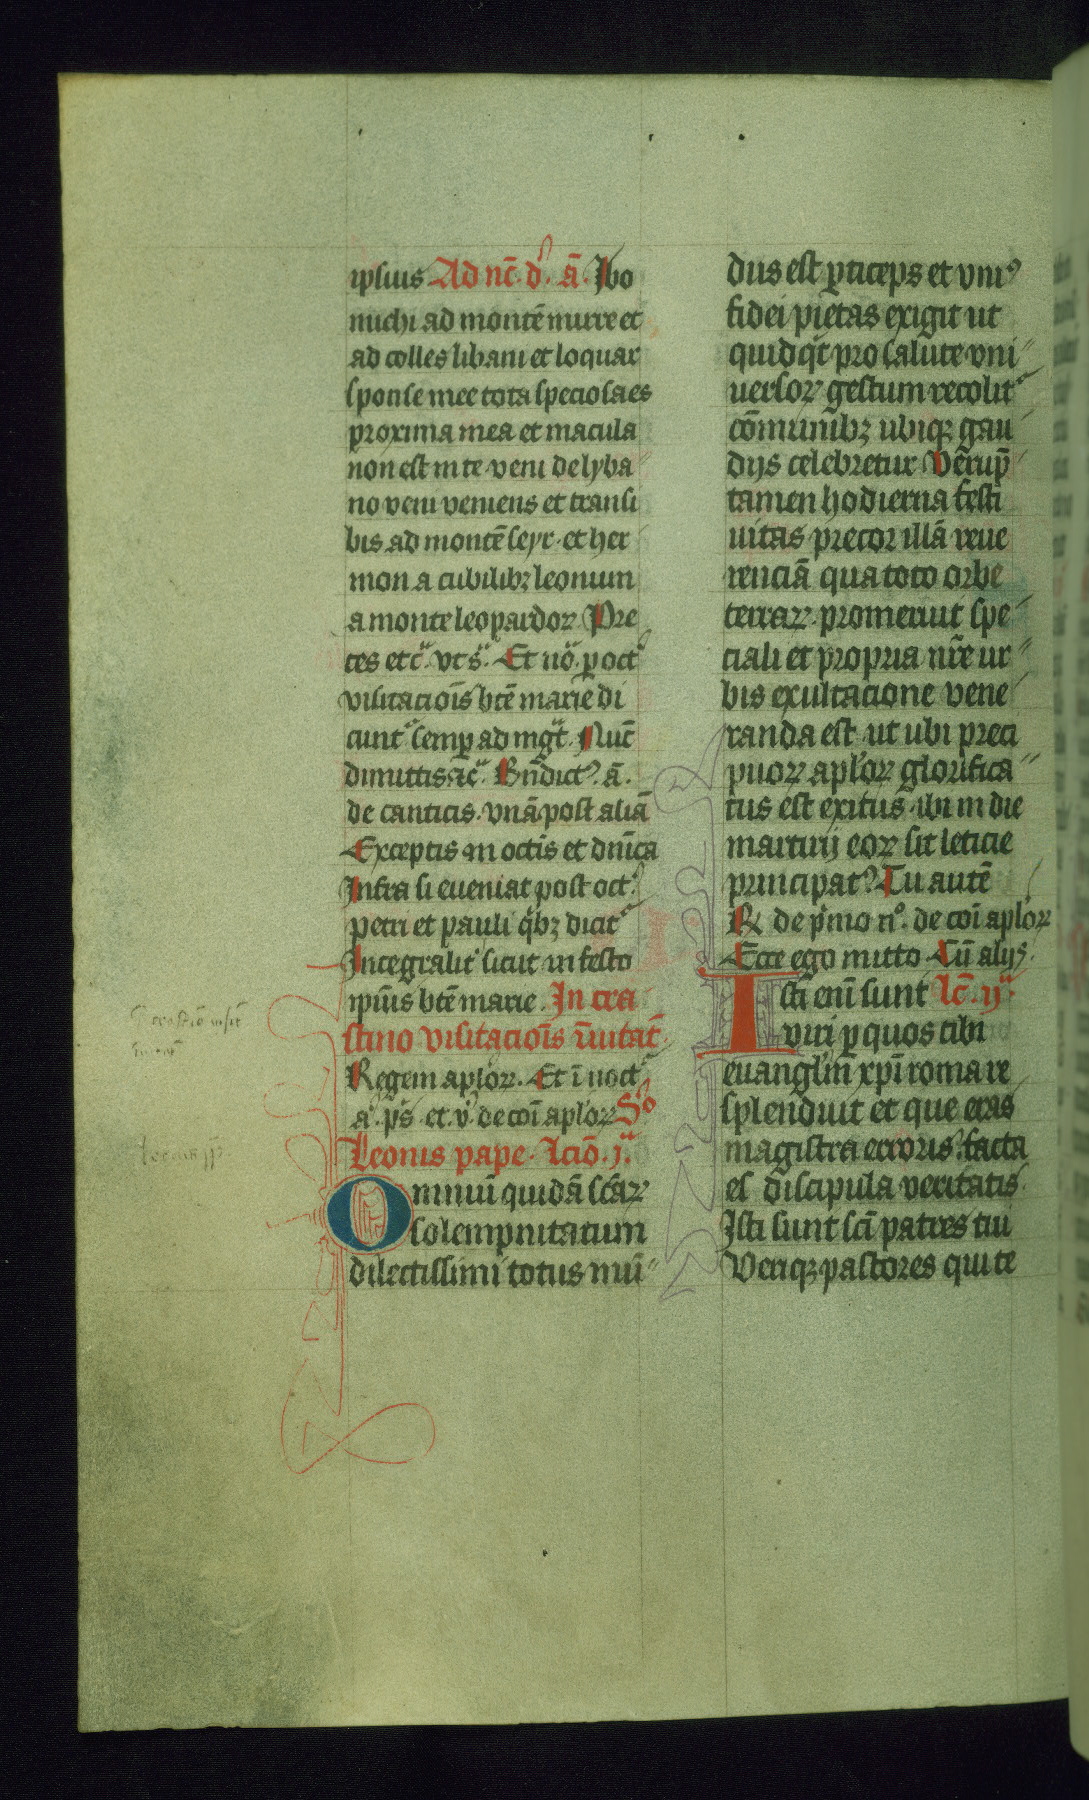 ipsius Ad nc̄. d. ā. Ibo
michi ad montē mirre et
ad colles libani et loquar
sponse mee tota speciosa es
proxima mea et macula
non est in te veni de lyba
no veni veniens et transi
bis ad montē seyr et her
mon a cubilibꝫ leonum
a monte leopardoꝝ Pre
ces etc̄. vt s. Et nō. ꝑ oct
visitacioīs btē marie di
cunt semꝑ ad mgt̄. Nūc
dimittis ꝛc̄. Bn̄dict⁹. ā.
de canticis. vnā post aliā
Exceptis in octīs et dn̄ica
Infra si eueniat post oct
petri et pauli q̇bꝫ dicit
Integralit̾ sicut in festo
ipīus btē marie. In cra
stino visitacioīs īuitat̄
Regem aploꝝ. Et ī noct
ā. ps̄. et. v̾. de coī aploꝝ S̾o
Leonis pape. lcīo. j.ᵃ
Omniū quidā scāꝝ
solempnitatum
dilectissimi totus mū
dus est ꝑticeps et vni⁹
fidei pietas exigit ut
quidqt̄ pro salute vni
uersoꝝ gestum recolit̾
cōmunibꝫ ubiqꝫ gau
dijs celebretur Verūp̄
tamen hodierna festi
uitas precor illā reue
renciā qua toto orbe
terraꝝ promeruit spe
ciali et propria nr̄e ur
bis exultacione vene
randa est ut ubi preci
puoꝝ aploꝝ glorifica
tus est exitus ibi in die
martirij eoꝝ sit leticie
principat⁹. Tu autē
℟ de pͥmo n⁰. de coī aploꝝ
Ecce ego mitto Cū alijs.
Isti enī sunt lc̄. ijᵃ
viri ꝑ quos tibi
euangliū xp̄i roma re
splenduit et que eras
magistra erroris. facta
es discipula veritatis.
Isti sunt scī patres tui
Veriqꝫ pastores qui te